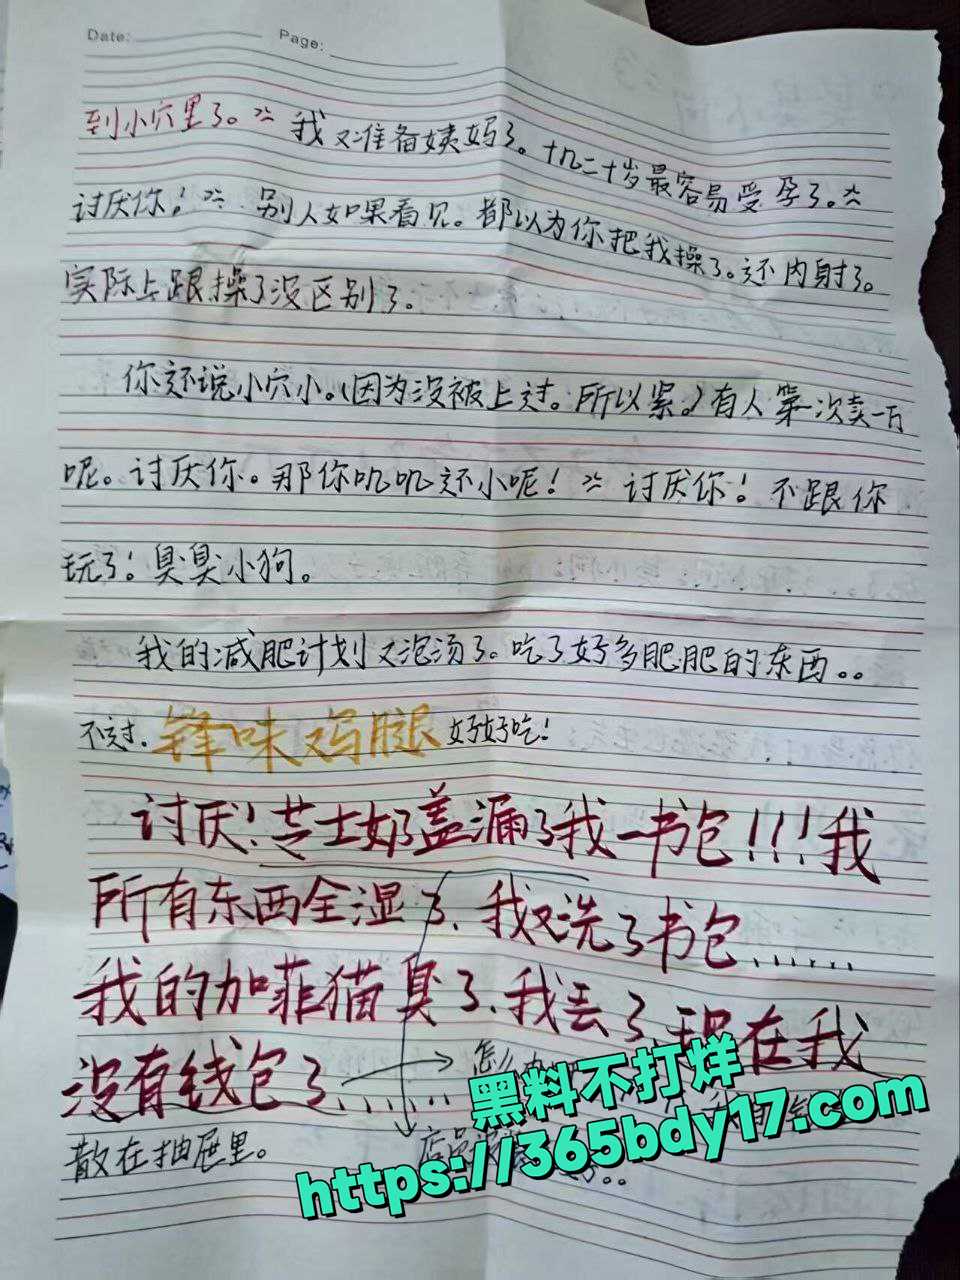 Date: Page:
到小穴里了。我又准备姨妈了。十九二十岁最容易受孕了。
讨厌你！别人如果看见。都以为你把我操了。还内射了。
实际上跟操了没区别了。
你还说小穴小。(因为没被上过。所以紧。)有人第一次卖一百
呢。讨厌你。那你叽叽还小呢！讨厌你！不跟你
玩了！臭臭小狗。
我的减肥计划又泡汤了。吃了好多肥肥的东西。。
不过.锋味鸡腿好好吃！
讨厌！芝士奶盖漏了我一书包!!!我
所有东西全湿了、我又洗了书包......
我的加菲猫臭了、我丢了、现在我
没有钱包了......
怎么
散在抽屉里。
店员
黑料不打烊
https://365bdy17.com